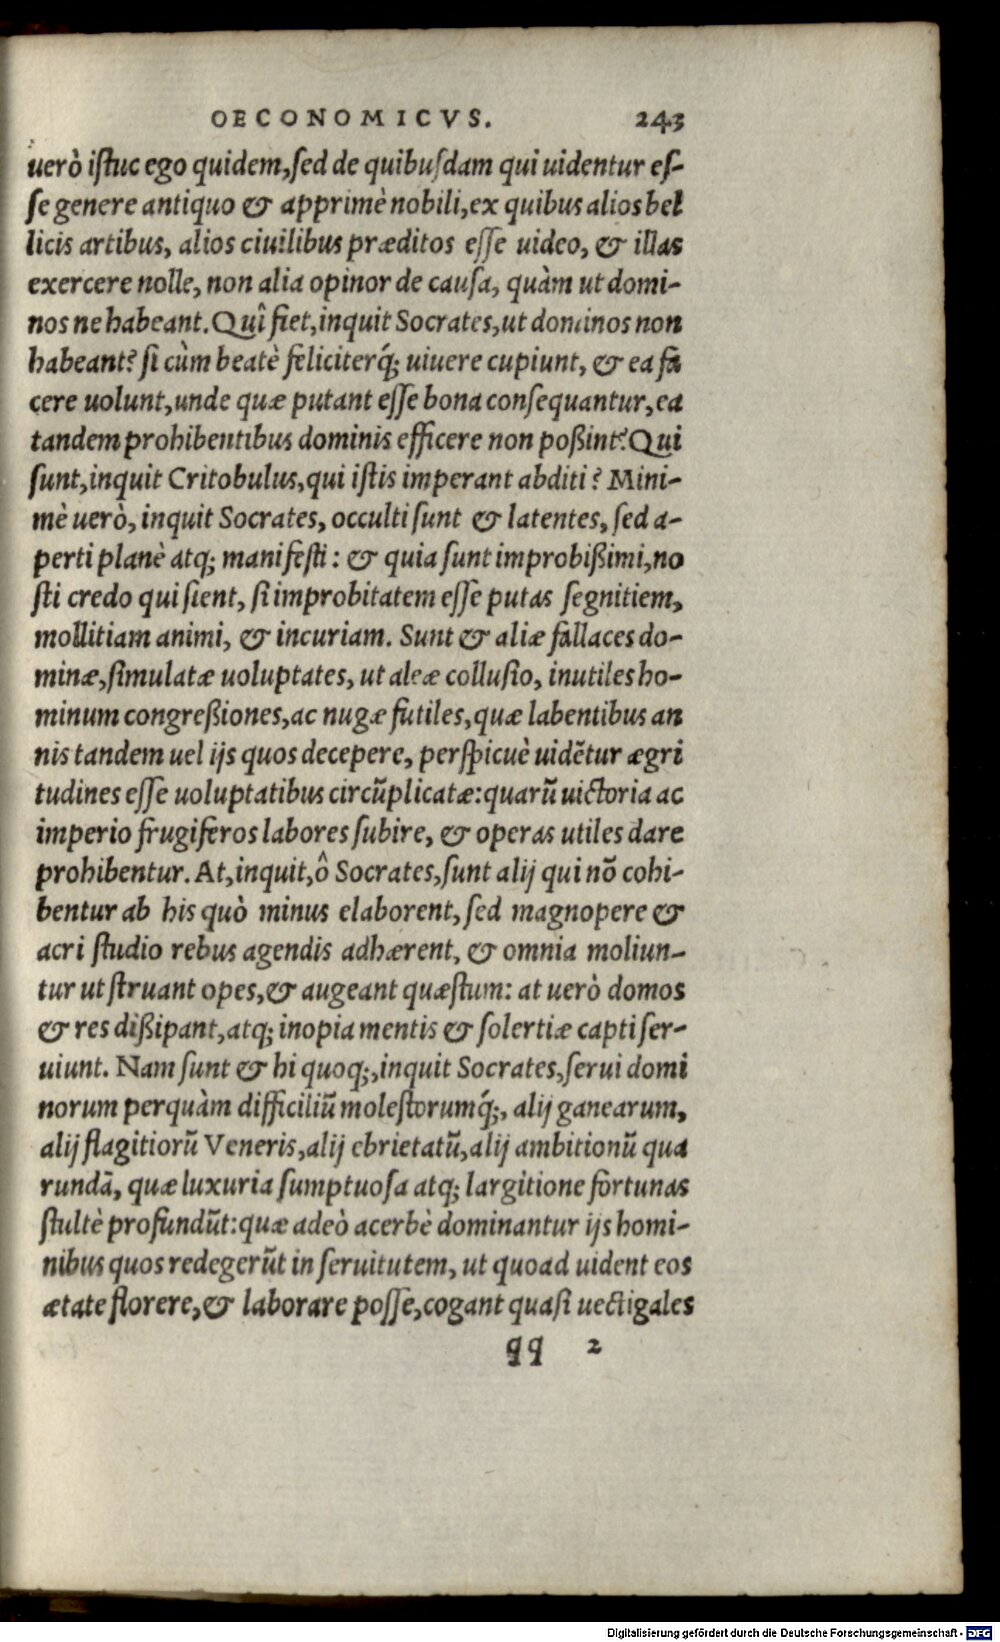 OECONOMICVS. 243
uerò iſtuc ego quidem,ſed de quibuſdam qui uidentur eſ-
ſe genere antiquo & apprimè nobili,ex quibus alios bel
licis artibus, alios ciuilibus præditos eſſe uideo, & illas
exercere nolle, non alia opinor de cauſa, quàm ut domi-
nos ne habeant. Quî fiet,inquit Socrates,ut dominos non
habeant? ſi cùm beatè feliciterq́; uiuere cupiunt, & ea fa
cere uolunt,unde quæ putant eſſe bona conſequantur,ea
tandem prohibentibus dominis efficere non poßint? Qui
ſunt,inquit Critobulus,qui iſtis imperant abditi? Mini-
mè uerò, inquit Socrates, occulti ſunt & latentes, ſed a-
perti planè atq; manifeſti: & quia ſunt improbißimi,no
ſti credo qui ſient, ſi improbitatem eſſe putas ſegnitiem,
mollitiam animi, & incuriam. Sunt & aliæ fallaces do-
minæ,ſimulatæ uoluptates, ut aleæ colluſio, inutiles ho-
minum congreßiones,ac nugæ futiles,quæ labentibus an
nis tandem uel ijs quos decepere, perſpicuè uidētur ægri
tudines eſſe uoluptatibus circūplicatæ:quarū uictoria ac
imperio frugiferos labores ſubire, & operas utiles dare
prohibentur. At,inquit,ô Socrates,ſunt alij qui nō cohi-
bentur ab his quò minus elaborent, ſed magnopere &
acri ſtudio rebus agendis adhærent, & omnia moliun-
tur ut ſtruant opes,& augeant quæſtum: at uerò domos
& res dißipant,atq; inopia mentis & ſolertiæ capti ſer-
uiunt. Nam ſunt & hi quoq;,inquit Socrates,ſerui domi
norum perquàm difficiliū moleſtorumq́;, alij ganearum,
alij flagitiorū Veneris,alij ebrietatū,alij ambitionū qua
rundā, quæ luxuria ſumptuoſa atq; largitione fortunas
ſtultè profundūt:quæ adeò acerbè dominantur ijs homi-
nibus quos redegerūt in ſeruitutem, ut quoad uident eos
ætate florere,& laborare poſſe,cogant quaſi uectigales
qq 2
Digitalisierung gefördert durch die Deutsche Forschungsgemeinschaft - DFG